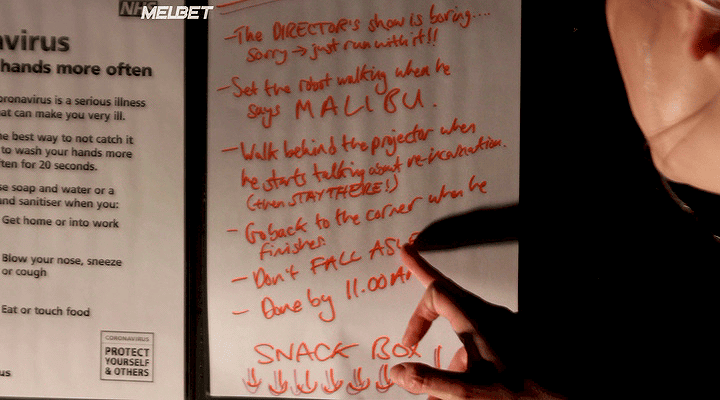 NHS
MELBET
avirus
hands more often
oronavirus is a serious illness
at can make you very ill.
e best way to not catch it
to wash your hands more
ten for 20 seconds.
se soap and water or a
and sanitiser when you:
Get home or into work
Blow your nose, sneeze
or cough
Eat or touch food
CORONAVIRUS
PROTECT
YOURSELF
& OTHERS
us
- The DIRECTOR'S show is boring....
sorry → just run with it!!
- Set the robot walking when he
says MALIBU.
- Walk behind the projector when
he starts talking about re-incarnation.
(then STAY THERE!)
- Go back to the corner when he
finishes.
- Don't FALL ASLE
- Done by 11.00 A
SNACK BOX